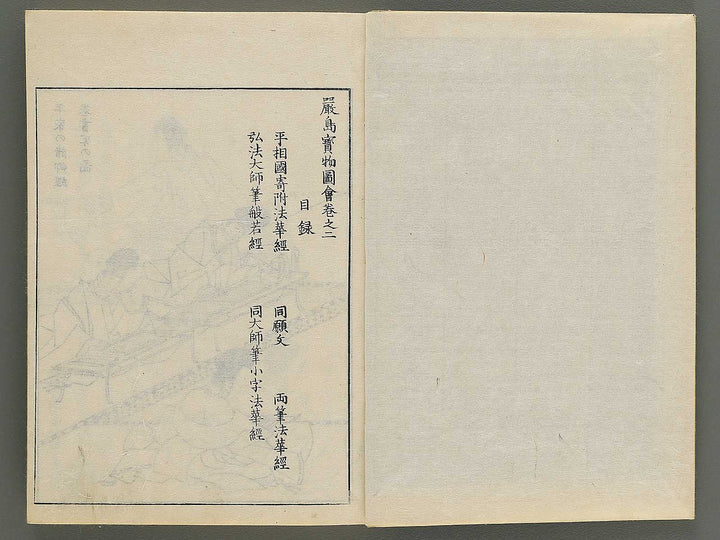 嚴島寳物圖會卷之二
目録
平相國寄附法華經　同願文　両筆法華經
弘法大師筆般若經　同大師筆小字法華經